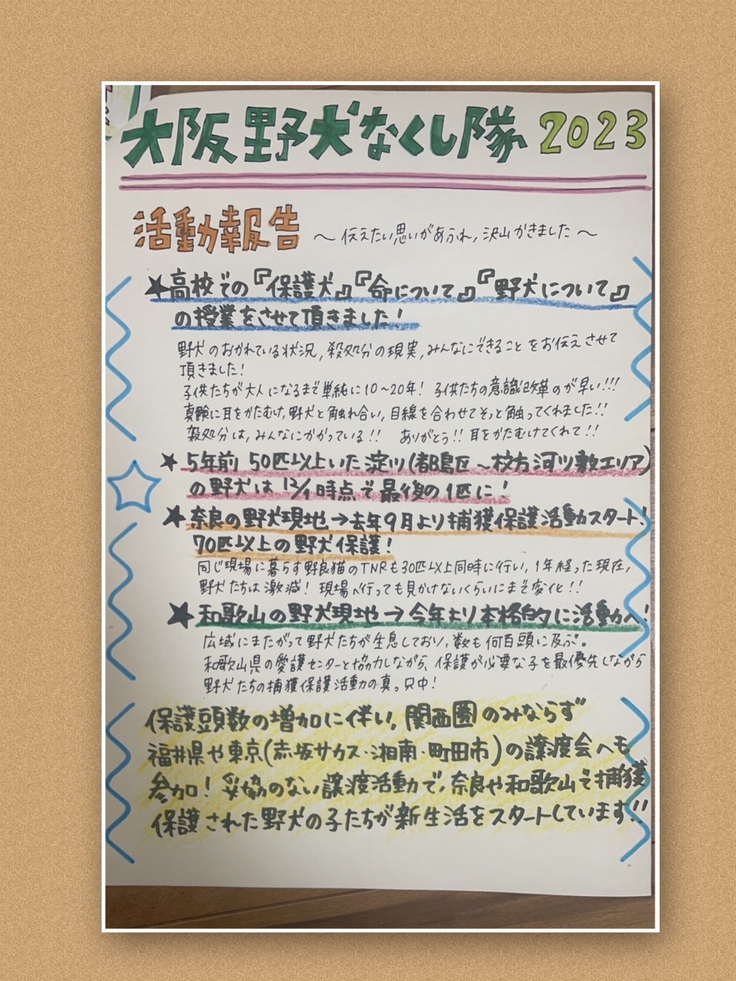 大阪野犬なくし隊 2023
活動報告 ～伝えたい思いがあふれ,沢山かきました～
★高校での『保護犬』『命について』『野犬について』
の授業をさせて頂きました！
野犬のおかれている状況,殺処分の現実,みんなにできることをお伝えさせて
頂きました！
子供たちが大人になるまで単純に10～20年！ 子供たちの意識改革のが早い!!!
真剣に耳をかたむけ,野犬と触れ合い,目線を合わせてそっと触ってくれました!!
殺処分は,みんなにかかっている!! ありがとう!! 耳をかたむけてくれて!!
★5年前 50匹以上いた淀川(都島区～枚方河川敷エリア)
の野犬は 12/1時点で最後の1匹に！
★奈良の野犬現地→去年9月より捕獲保護活動スタート！
70匹以上の野犬保護！
同じ現場に暮らす野良猫のTNRも30匹以上同時に行い,1年経った現在,
野犬たちは激減！ 現場へ行っても見かけないくらいにまで変化!!
★和歌山の野犬現地→今年より本格的に活動へ！
広域にまたがって野犬たちが生息しており,数も何百頭に及ぶ。
和歌山県の愛護センターと協力しながら,保護が必要な子を最優先しながら
野犬たちの捕獲保護活動の真っ只中！
保護頭数の増加に伴い,関西圏のみならず
福井県や東京(赤坂サカス・湘南・町田市)の譲渡会へも
参加！妥協のない譲渡活動で,奈良や和歌山で捕獲
保護された野犬の子たちが新生活をスタートしています!!